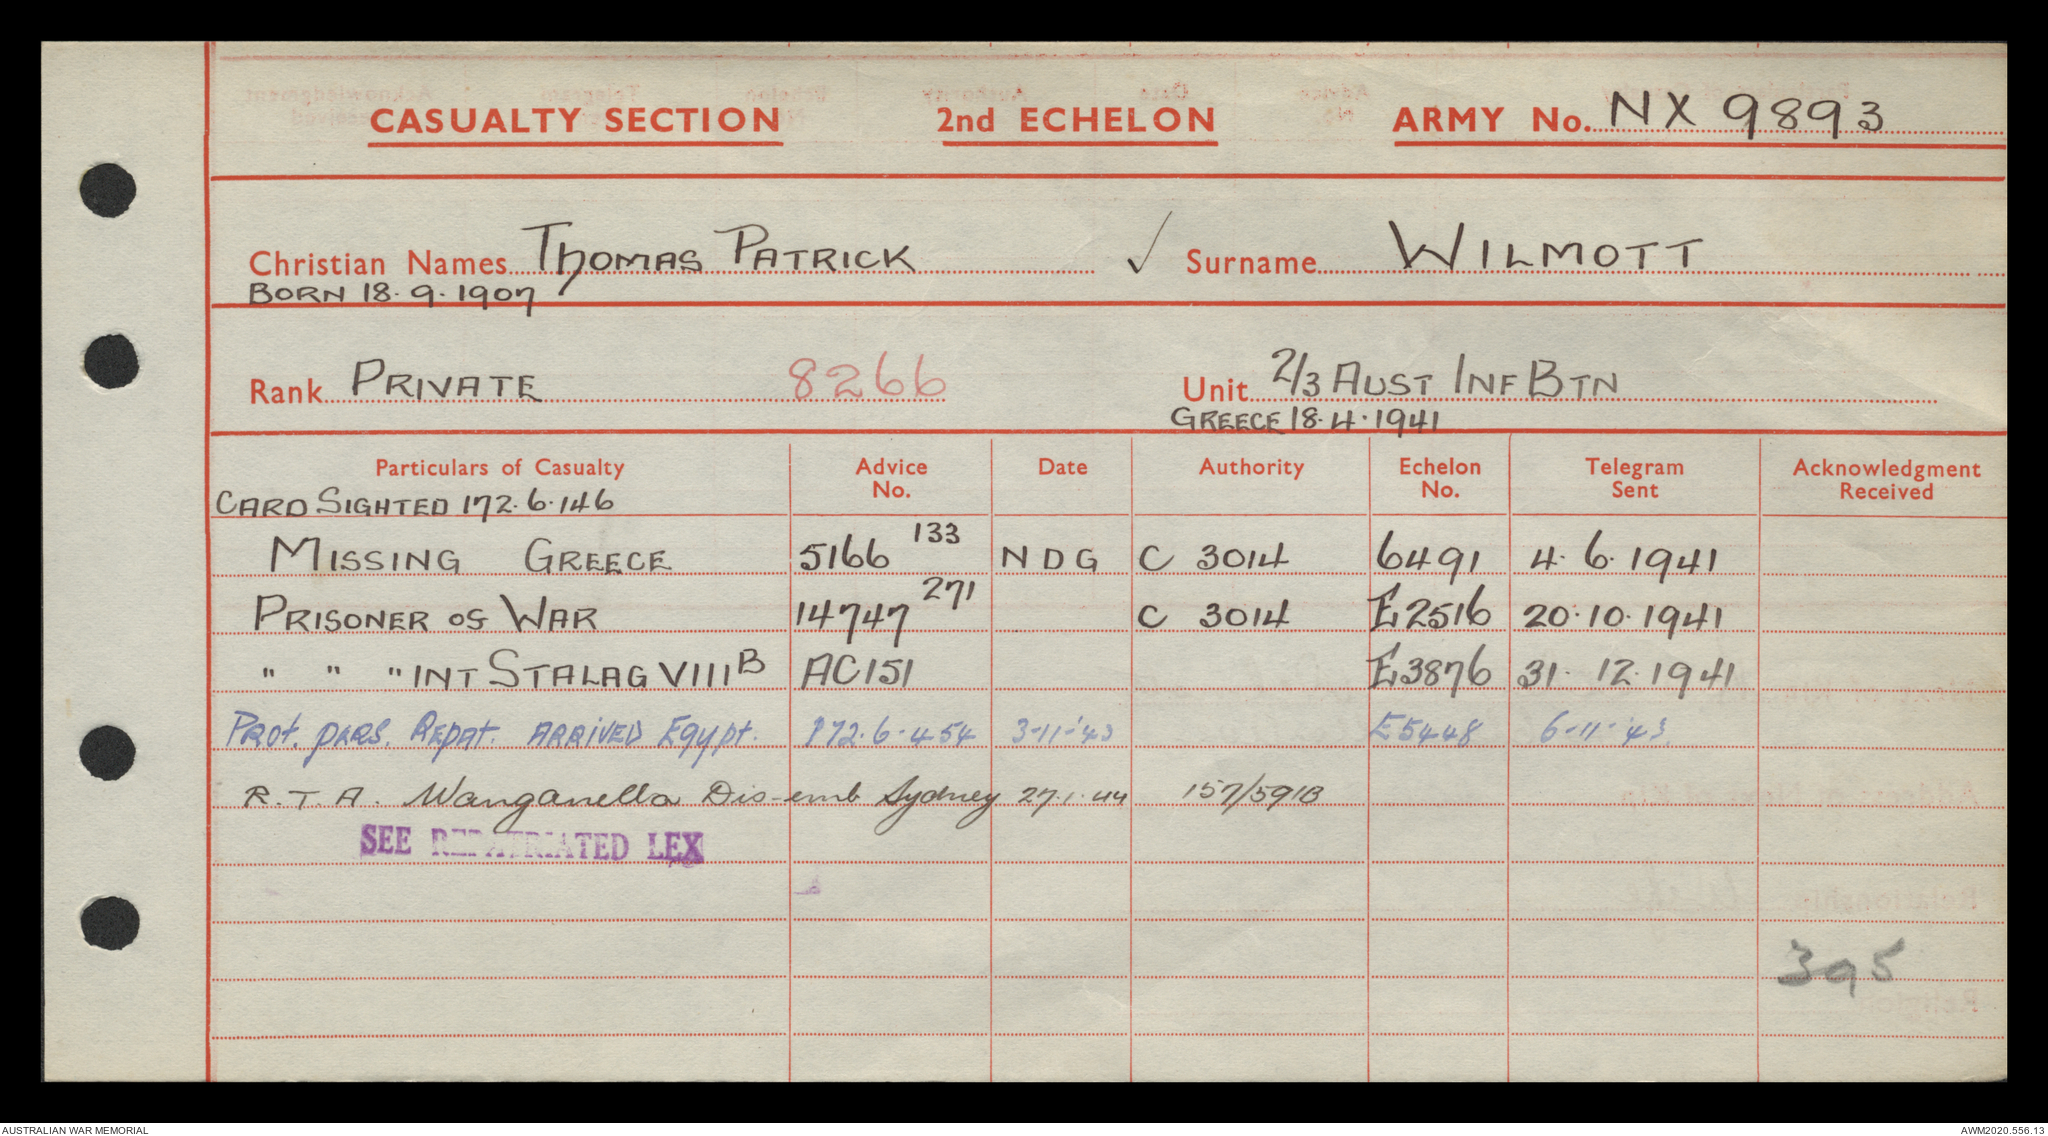 CASUALTY SECTION 2nd ECHELON ARMY No. NX 9893
Christian Names THOMAS PATRICK ✓ Surname WILMOTT
BORN 18.9.1907
Rank PRIVATE 8266 Unit 2/3 AUST INF BTN
GREECE 18.4.1941
Particulars of Casualty Advice No. Date Authority Echelon No. Telegram Sent Acknowledgment Received
CARD SIGHTED 172.6.146
MISSING GREECE 5166 133 NDG C 3014 6491 4.6.1941
PRISONER OF WAR 14747 271 C 3014 E2516 20.10.1941
" " " INT STALAG VIII B AC151 E3876 31.12.1941
Prot. pers. Repat. ARRIVED Egypt. 172.6.454 3-11-'43 E5448 6-11-'43.
R.T.A. Wanganella Dis-emb Sydney 27.1.44 157/591B
SEE REPATRIATED LEX
395
AUSTRALIAN WAR MEMORIAL AWM2020.556.13